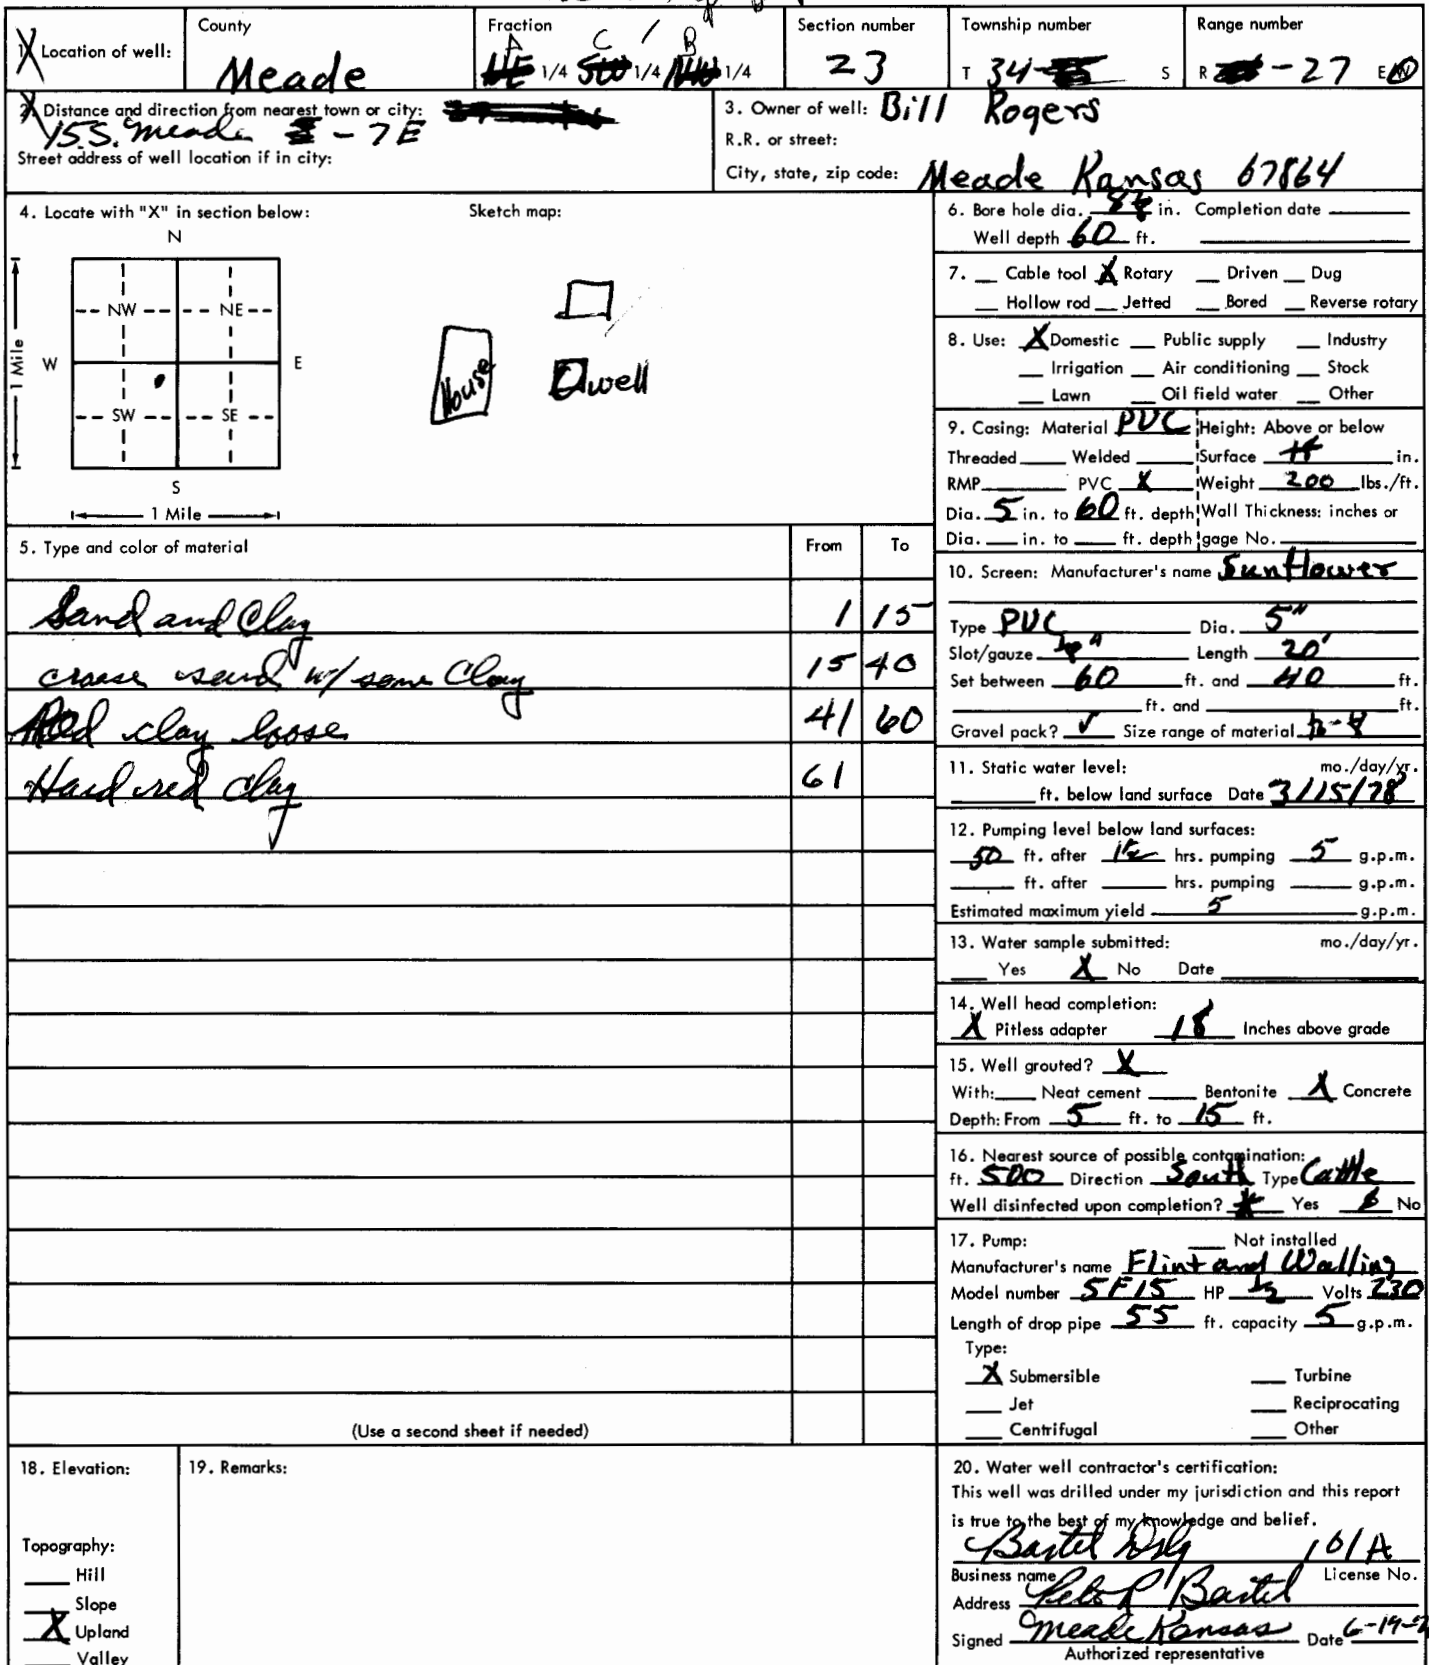 1. Location of well: County Meade Fraction NE 1/4 SW 1/4 NW 1/4 A C B Section number 23 Township number T 34 S Range number R -27 E W
2. Distance and direction from nearest town or city: 15 S. Meade - 7 E
Street address of well location if in city:
3. Owner of well: Bill Rogers
R.R. or street:
City, state, zip code: Meade Kansas 67864
4. Locate with "X" in section below:
N
NW NE
W E
SW SE
S
1 Mile
1 Mile
Sketch map:
House
well
5. Type and color of material From To
Sand and Clay 1 15
croase sand w/ some Clay 15 40
Red clay loose 41 60
Hard red clay 61
(Use a second sheet if needed)
6. Bore hole dia. in. Completion date
Well depth 60 ft.
7. Cable tool X Rotary Driven Dug
Hollow rod Jetted Bored Reverse rotary
8. Use: X Domestic Public supply Industry
Irrigation Air conditioning Stock
Lawn Oil field water Other
9. Casing: Material PVC Height: Above or below
Threaded Welded Surface in.
RMP PVC X Weight 200 lbs./ft.
Dia. 5 in. to 60 ft. depth Wall Thickness: inches or
Dia. in. to ft. depth gage No.
10. Screen: Manufacturer's name Sunflower
Type PVC Dia. 5"
Slot/gauze Length 20'
Set between 60 ft. and 40 ft.
ft. and ft.
Gravel pack? ✓ Size range of material
11. Static water level: mo./day/yr.
ft. below land surface Date 3/15/78
12. Pumping level below land surfaces:
50 ft. after 1½ hrs. pumping 5 g.p.m.
ft. after hrs. pumping g.p.m.
Estimated maximum yield 5 g.p.m.
13. Water sample submitted: mo./day/yr.
Yes X No Date
14. Well head completion:
X Pitless adapter 18 Inches above grade
15. Well grouted? X
With: Neat cement Bentonite X Concrete
Depth: From 5 ft. to 15 ft.
16. Nearest source of possible contamination:
ft. 500 Direction South Type Cattle
Well disinfected upon completion? Yes No
17. Pump: Not installed
Manufacturer's name Flint and Walling
Model number 5F15 HP ½ Volts 230
Length of drop pipe 55 ft. capacity 5 g.p.m.
Type:
X Submersible Turbine
Jet Reciprocating
Centrifugal Other
18. Elevation:
Topography:
Hill
Slope
X Upland
Valley
19. Remarks:
20. Water well contractor's certification:
This well was drilled under my jurisdiction and this report
is true to the best of my knowledge and belief.
Bartel Drlg 101A
Business name License No.
Address Bartel
Signed Meade Kansas Date 6-19-
Authorized representative